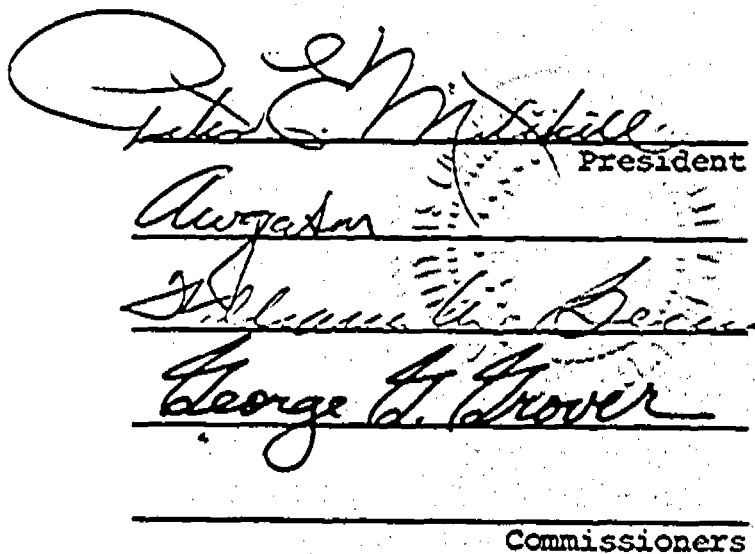 Peter E. Mitchell
President
William
George G. Grover
Commissioners